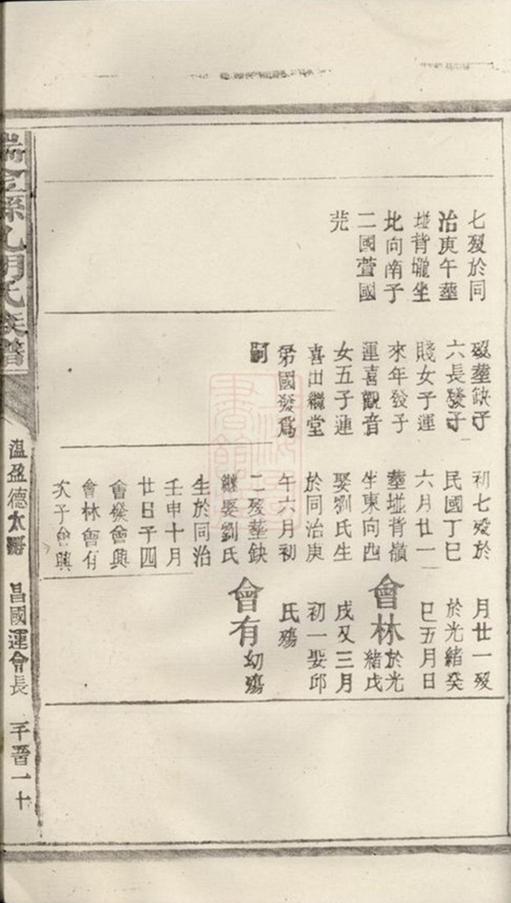 七歿於同
治庚午塟
塸背壠坐
北向南子
二國萱國
茪
歿塟缺子
六長發子
賤女子運
來年發子
運喜觀音
女五子連
喜出繼堂
弟國發爲
嗣
初七歿於
民國丁巳
六月廿一
塟塸背嶺
坐東向西
娶劉氏生
於同治庚
午六月初
二歿塟缺
繼娶劉氏
生於同治
壬申十月
廿日子四
會發會興
會林會有
次子會興
月廿一歿
於光緒癸
巳五月日
會林於光
緒戊
戌及三月
初一娶邱
氏殤
會有幼殤
瑞金縣九胡氏族譜
溫盈德太
昌國運會長
千晋一十